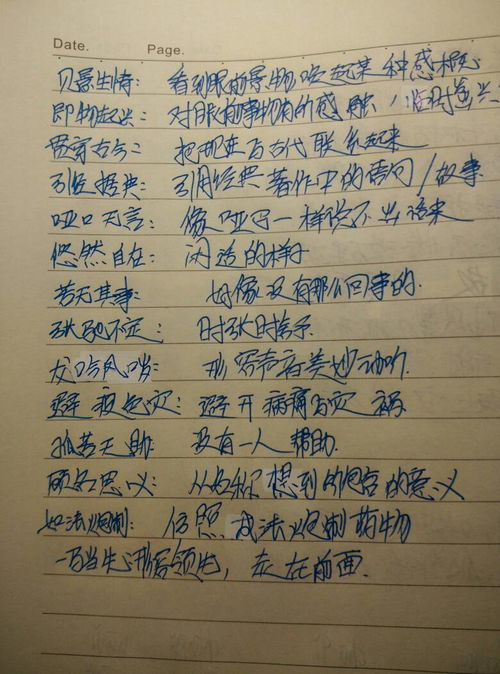 Date. Page.
见景生情：看到眼前景物唤起某种感概
即物起兴：对眼前事物有所感触，临时兴
贯穿古今：把现在与古代联系起来
引经据典：引用经典著作中的语句/故事
哑口无言：像哑子一样说不出话来
悠然自在：闲适的样子
若无其事：好像没有那么回事的.
张弛不定：时张时弛
龙吟凤哕：形容声音美妙动听
避疫免灾：避开病痛与灾祸
孤苦无助：没有一人帮助.
顾名思义：从名称想到所包含的意义
如法炮制：仿照成法炮制药物
一马当先形容领先，走在前面.